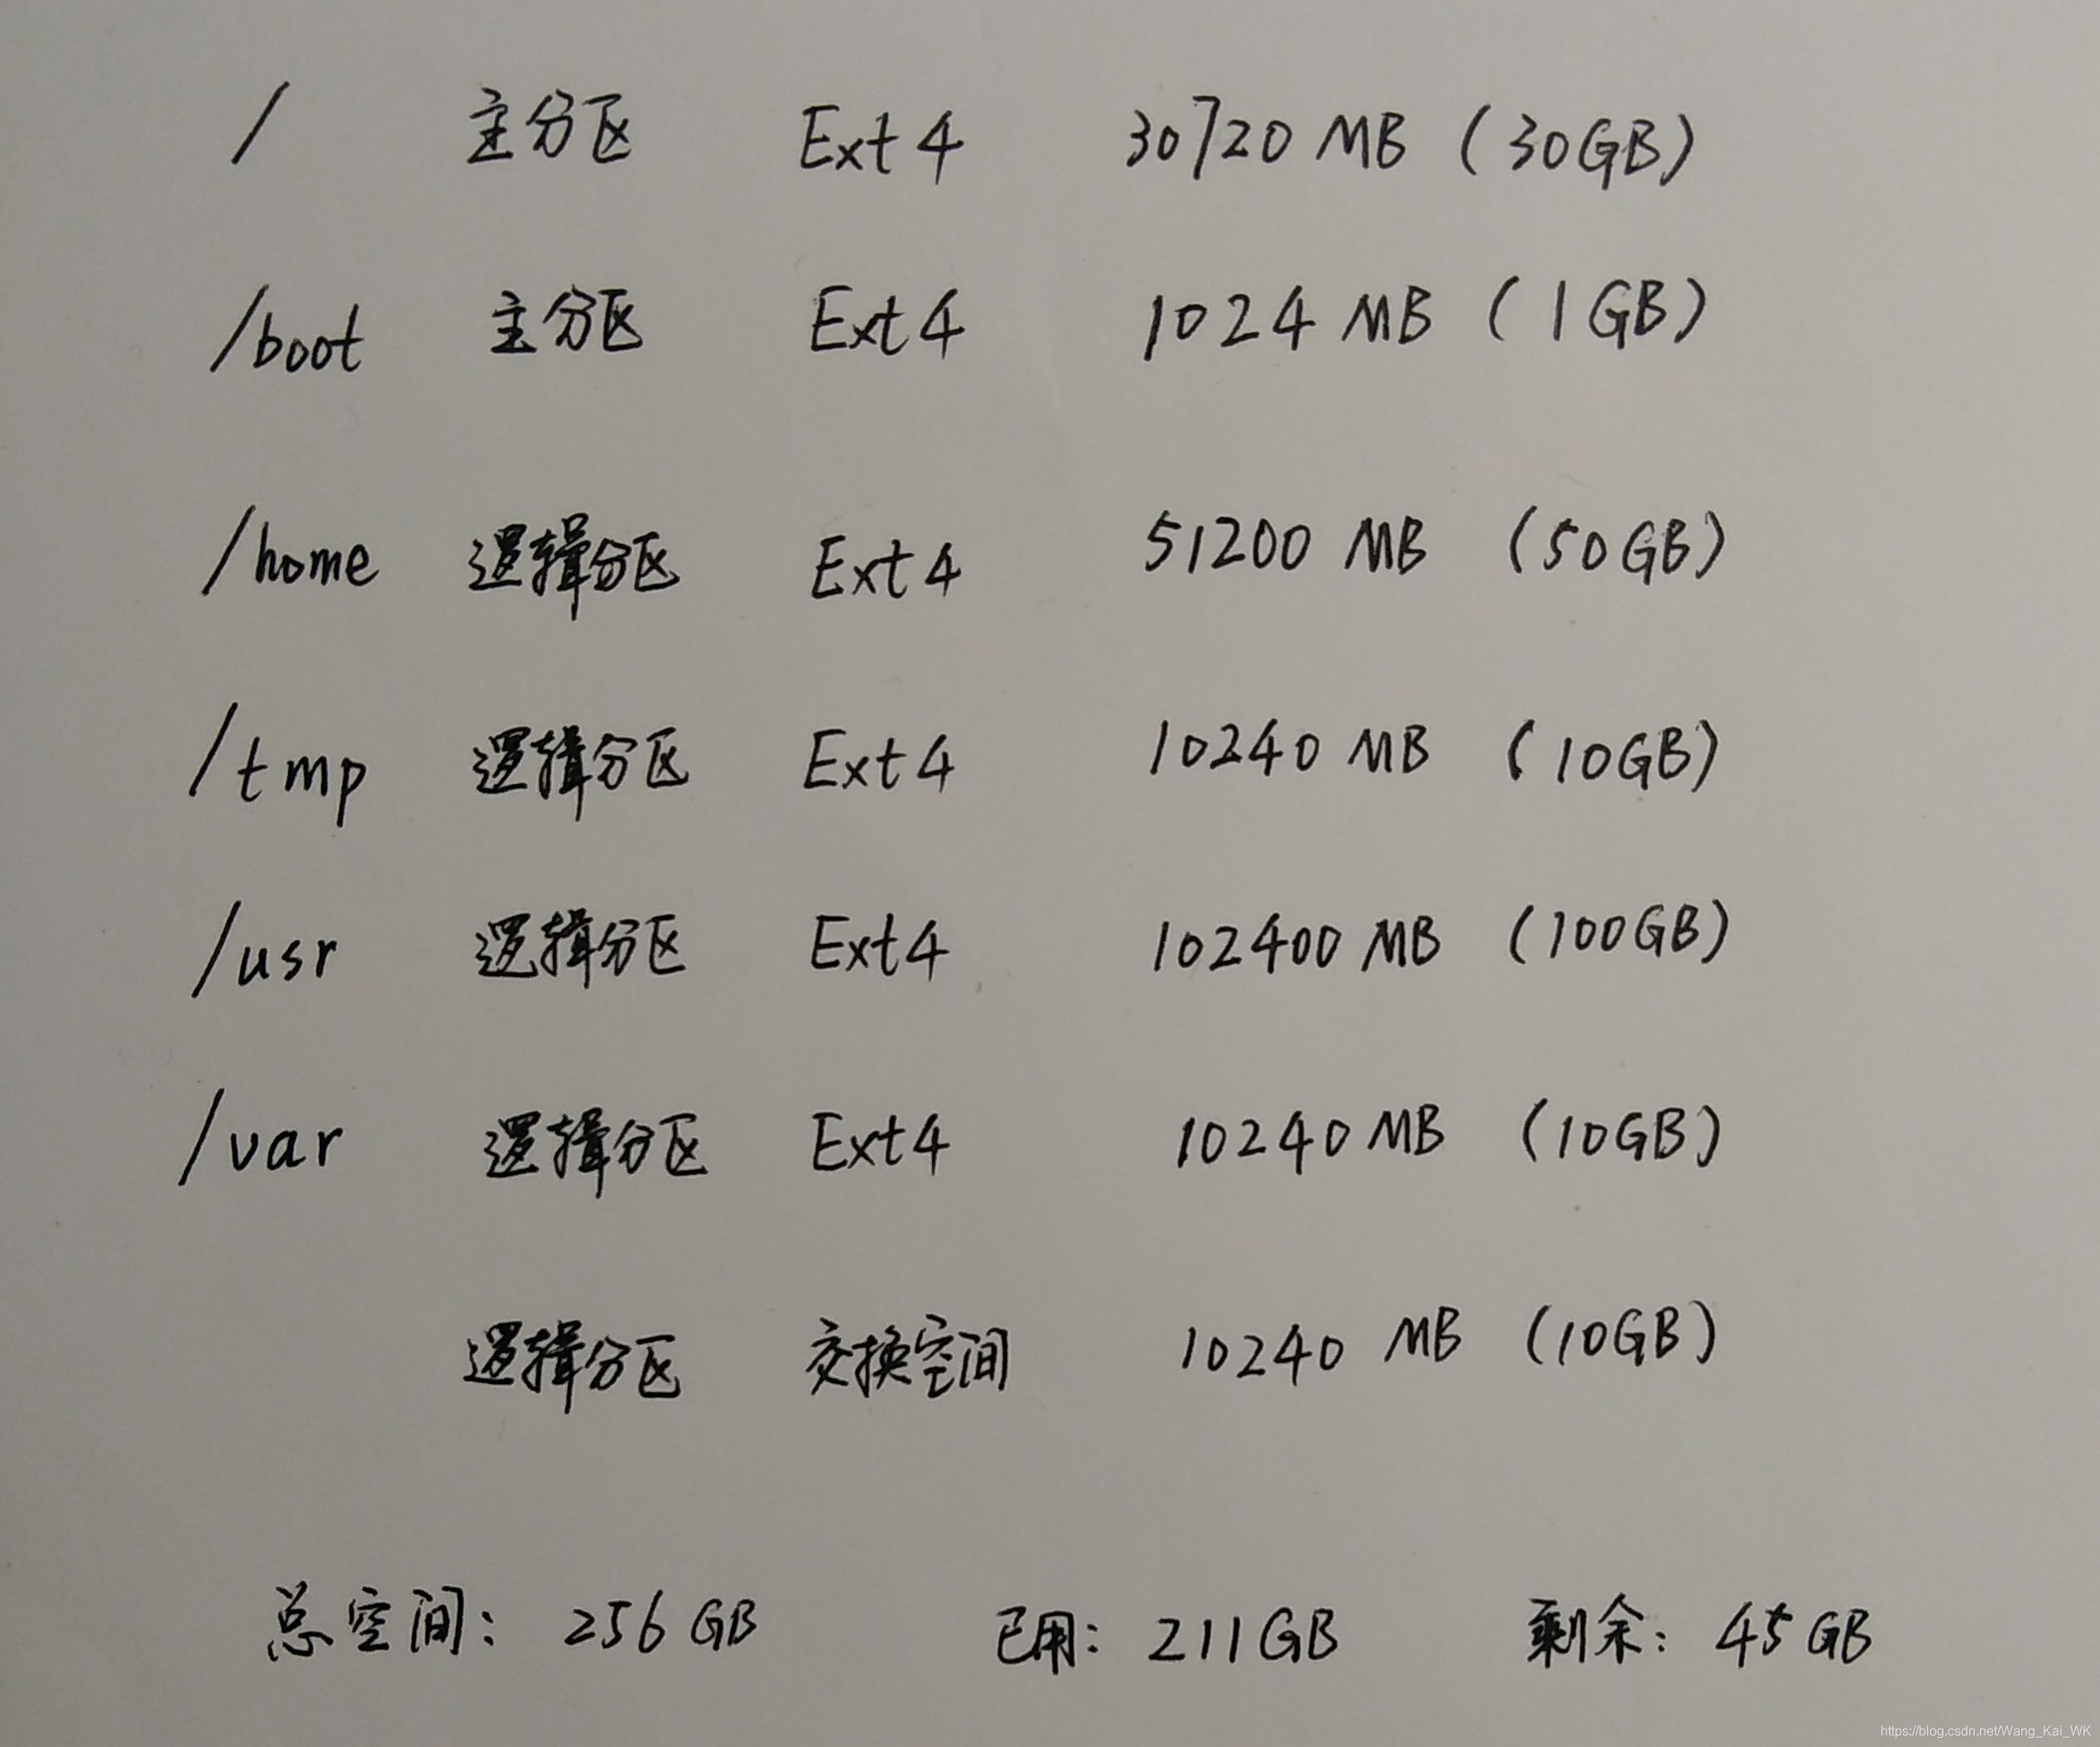 / 主分区 Ext4 30720 MB (30GB)
/boot 主分区 Ext4 1024 MB (1GB)
/home 逻辑分区 Ext4 51200 MB (50GB)
/tmp 逻辑分区 Ext4 10240 MB (10GB)
/usr 逻辑分区 Ext4 102400 MB (100GB)
/var 逻辑分区 Ext4 10240 MB (10GB)
逻辑分区 交换空间 10240 MB (10GB)
总空间: 256GB 已用: 211GB 剩余: 45GB
https://blog.csdn.net/Wang_Kai_WK